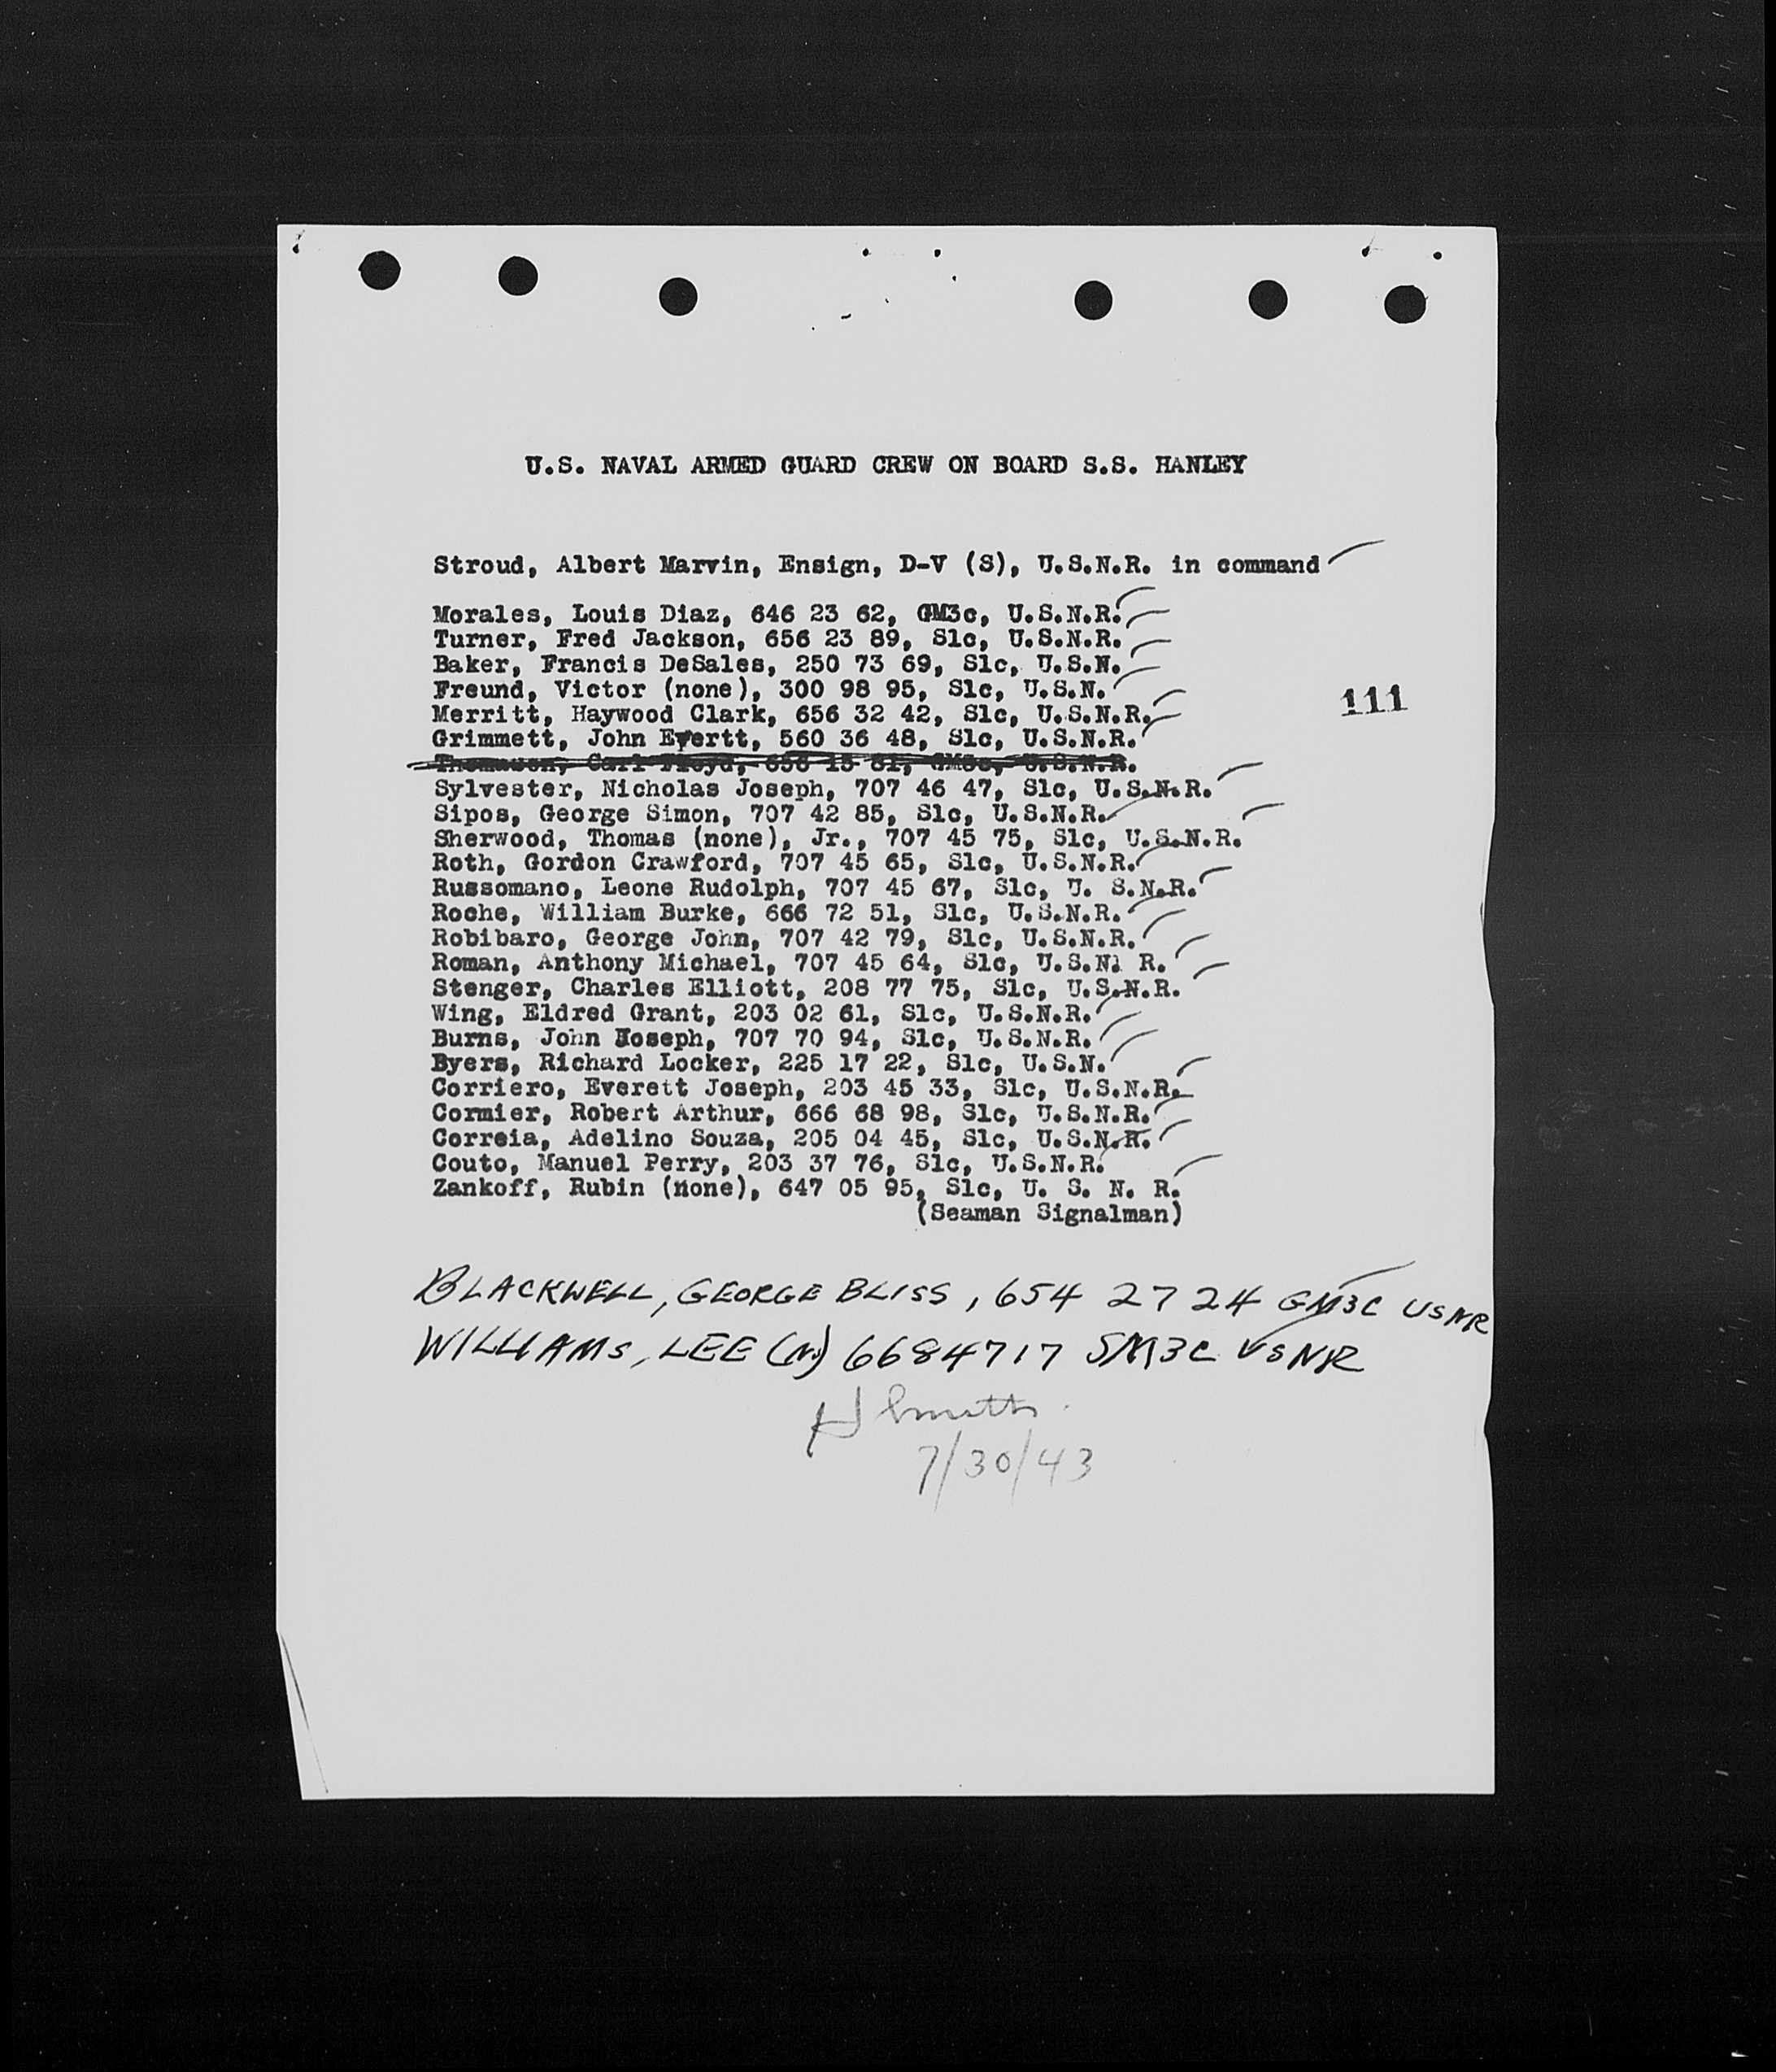 U.S. NAVAL ARMED GUARD CREW ON BOARD S.S. HANLEY
Stroud, Albert Marvin, Ensign, D-V (S), U.S.N.R. in command
Morales, Louis Diaz, 646 23 62, GM3c, U.S.N.R.
Turner, Fred Jackson, 656 23 89, S1c, U.S.N.R.
Baker, Francis DeSales, 250 73 69, S1c, U.S.N.
Freund, Victor (none), 300 98 95, S1c, U.S.N.
111
Merritt, Haywood Clark, 656 32 42, S1c, U.S.N.R.
Grimmett, John Evertt, 560 36 48, S1c, U.S.N.R.
Carl Floyd, U.S.N.R.
Sylvester, Nicholas Joseph, 707 46 47, S1c, U.S.N.R.
Sipos, George Simon, 707 42 85, S1c, U.S.N.R.
Sherwood, Thomas (none), Jr., 707 45 75, S1c, U.S.N.R.
Roth, Gordon Crawford, 707 45 65, S1c, U.S.N.R.
Russomano, Leone Rudolph, 707 45 67, S1c, U. S.N.R.
Roche, William Burke, 666 72 51, S1c, U.S.N.R.
Robibaro, George John, 707 42 79, S1c, U.S.N.R.
Roman, Anthony Michael, 707 45 64, S1c, U.S.N. R.
Stenger, Charles Elliott, 208 77 75, S1c, U.S.N.R.
Wing, Eldred Grant, 203 02 61, S1c, U.S.N.R.
Burns, John Joseph, 707 70 94, S1c, U.S.N.R.
Byers, Richard Locker, 225 17 22, S1c, U.S.N.
Corriero, Everett Joseph, 203 45 33, S1c, U.S.N.R.
Cormier, Robert Arthur, 666 68 98, S1c, U.S.N.R.
Correia, Adelino Souza, 205 04 45, S1c, U.S.N.R.
Couto, Manuel Perry, 203 37 76, S1c, U.S.N.R.
Zankoff, Rubin (none), 647 05 95, S1c, U. S. N. R.
(Seaman Signalman)
BLACKWELL, GEORGE BLISS, 654 27 24 GM3C USNR
WILLIAMS, LEE (N) 6684717 SM3C USNR
H Smith
7/30/43